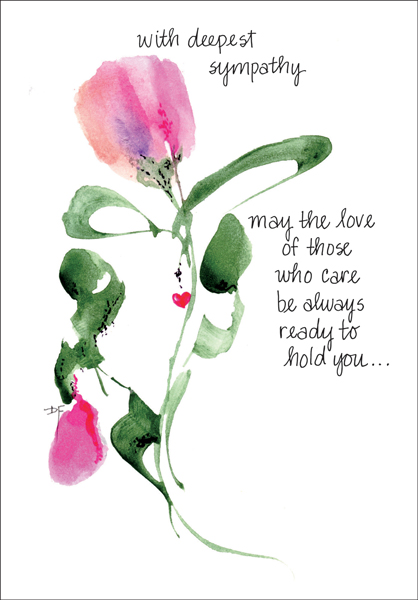 with deepest
sympathy
may the love
of those
who care
be always
ready to
hold you...
DF